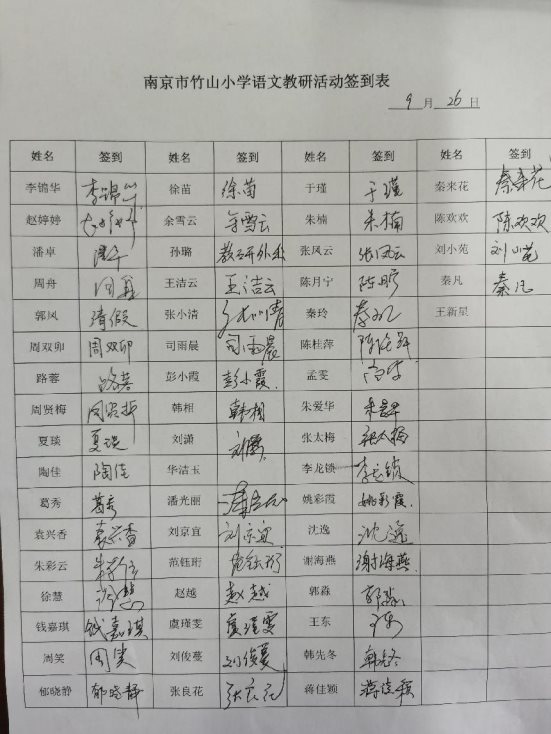 南京市竹山小学语文教研活动签到表
9 月 26 日
姓名 签到 姓名 签到 姓名 签到 姓名 签到
李锦华 李锦华 徐苗 徐苗 于瑾 于瑾 秦来花 秦来花
赵婷婷 余雪云 余雪云 朱楠 朱楠 陈欢欢 陈欢欢
潘卓 孙璐 教研外出 张凤云 张凤云 刘小苑 刘小苑
周舟 王洁云 王洁云 陈月宁 秦凡 秦凡
郭凤 请假 张小清 秦玲 王新星
周双卯 周双卯 司雨晨 司雨晨 陈桂萍
路蓉 路蓉 彭小霞 彭小霞 孟雯
周贤梅 韩相 韩相 朱爱华
夏琰 夏琰 刘潇 张太梅 张太梅
陶佳 陶佳 华洁玉 李龙锁 李龙锁
葛秀 葛秀 潘光丽 姚彩霞 姚彩霞
袁兴香 袁兴香 刘京宜 刘京宜 沈逸 沈逸
朱彩云 范钰珩 谢海燕 谢海燕
徐慧 赵越 赵越 郭淼 郭淼
钱嘉琪 钱嘉琪 虞瑾雯 虞瑾雯 王东
周笑 周笑 刘俊蔓 刘俊蔓 韩先冬
郁晓静 郁晓静 张良花 张良花 蒋佳颖